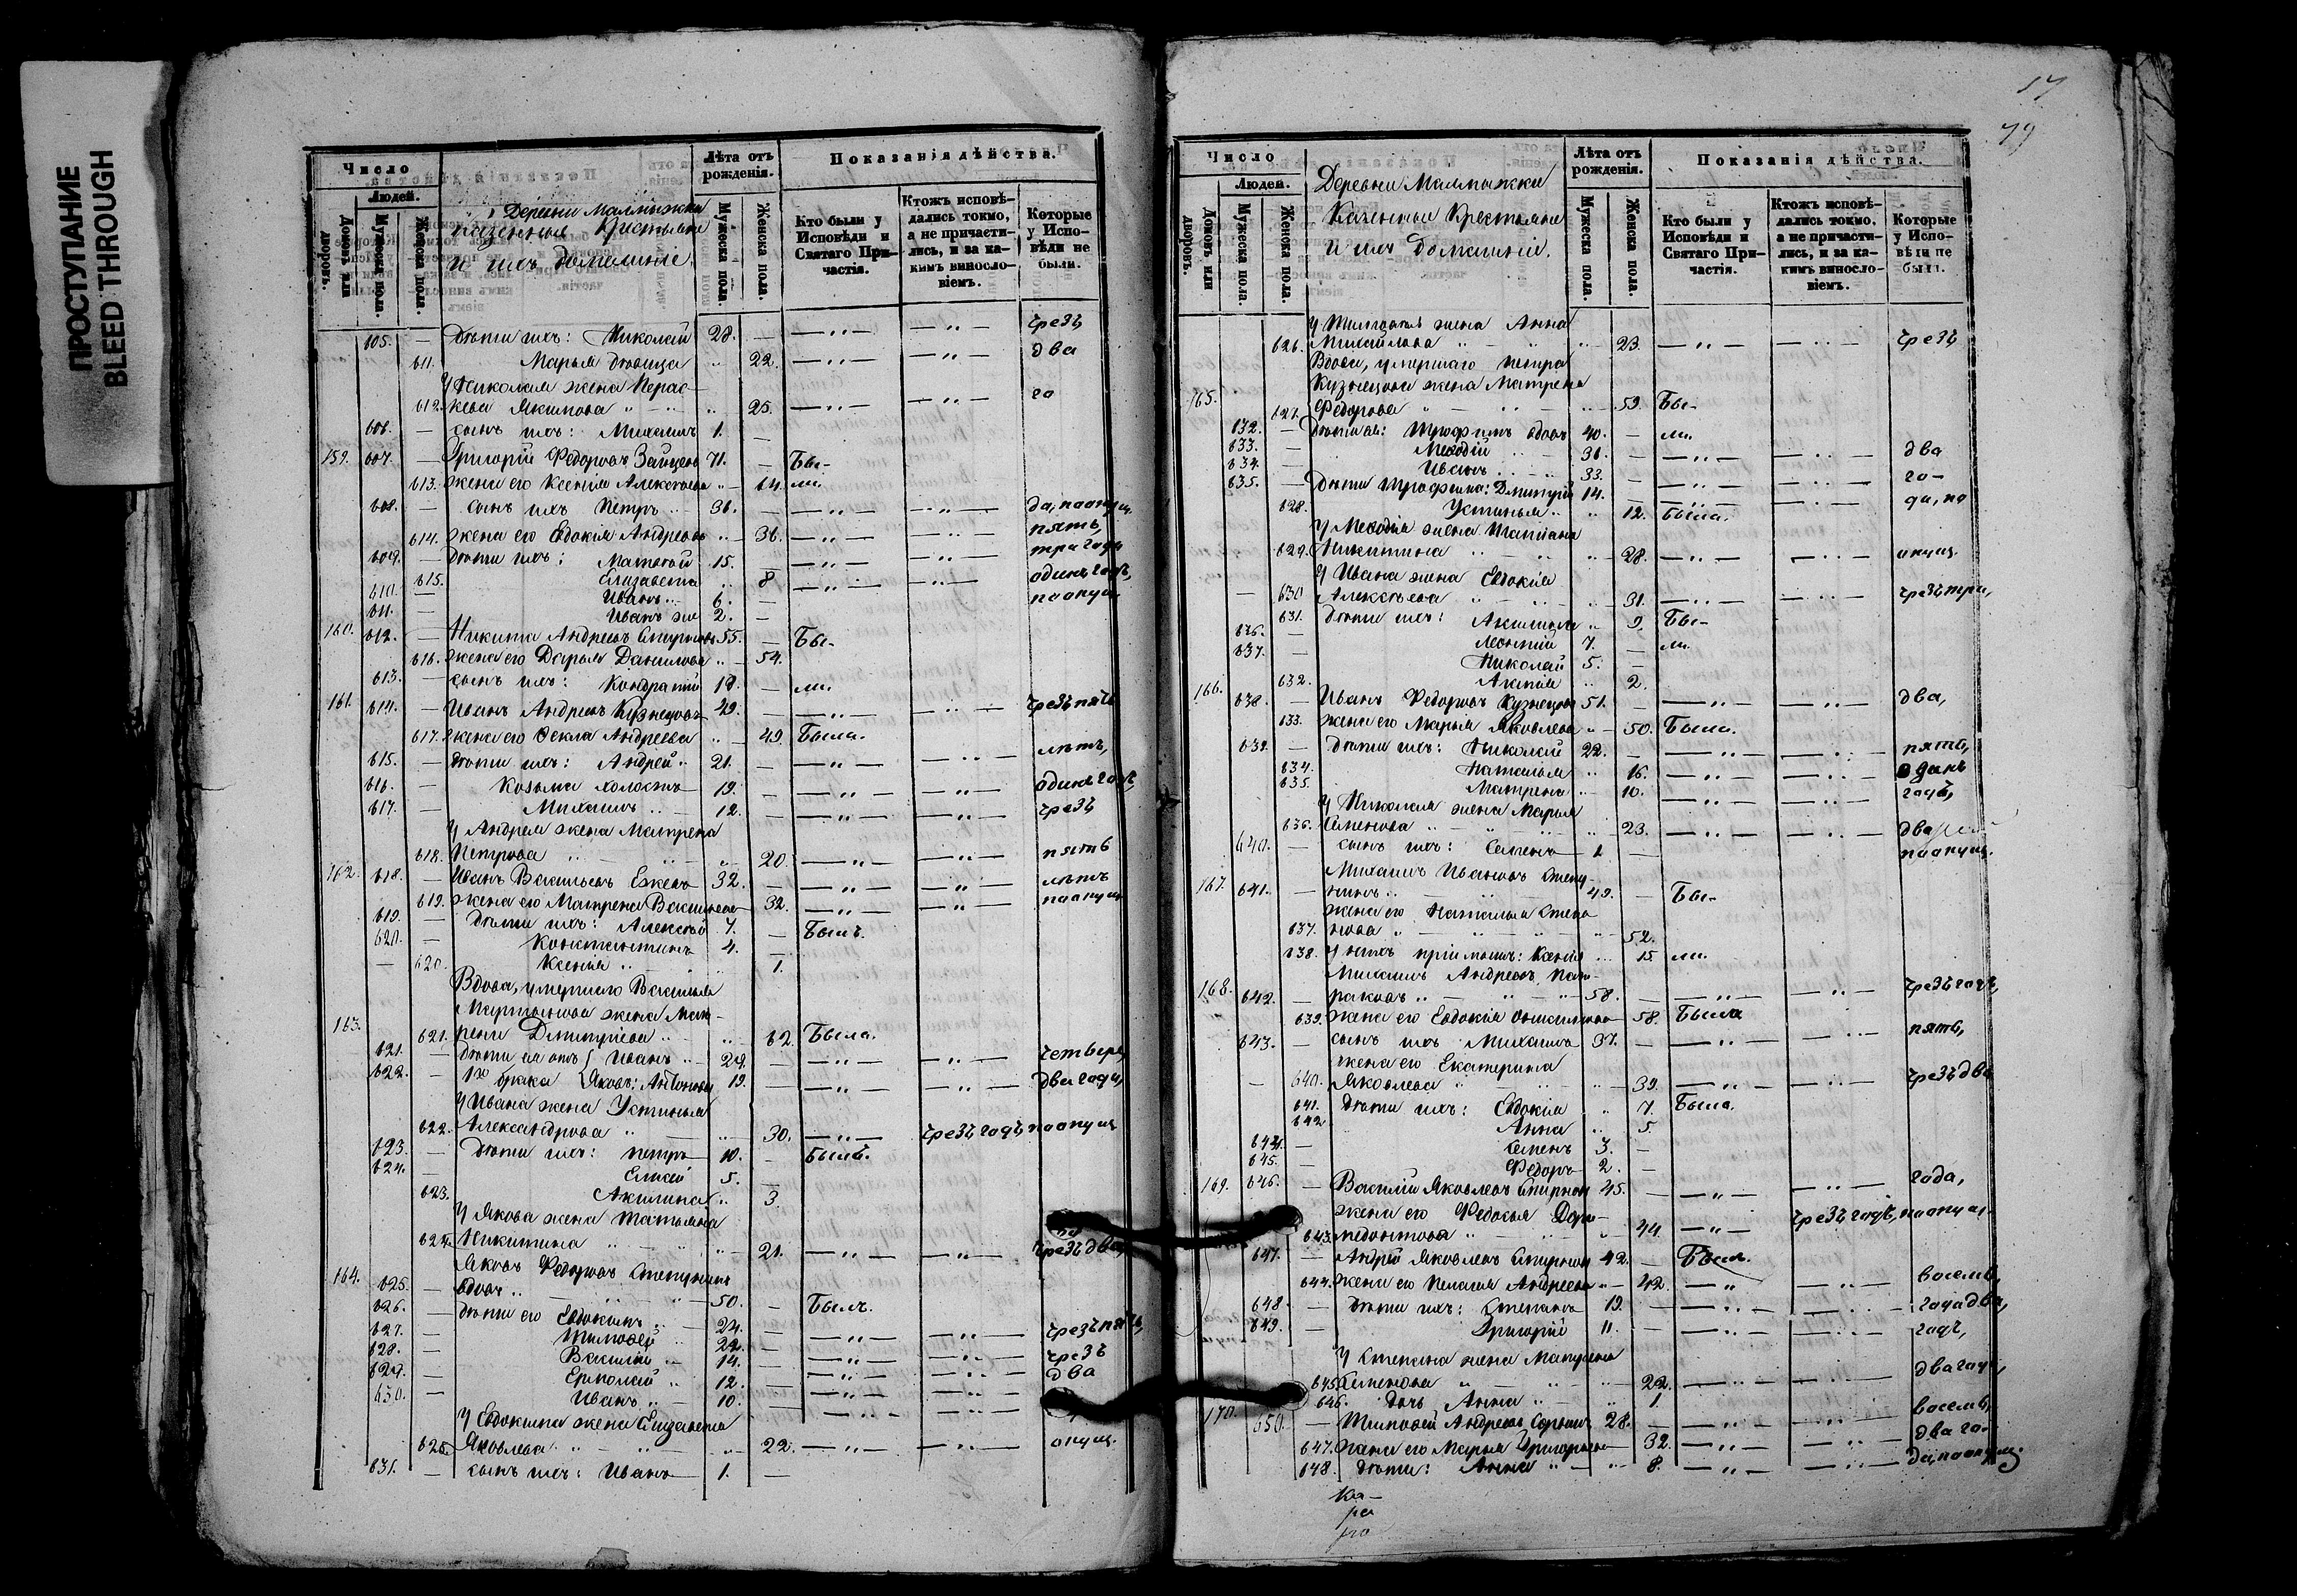 ПРОСТУПАНИЕ
BLEED THROUGH
Число
Людей.
Домовъ или дворовъ.
Мужеска пола.
Женска пола.
Деревни Малмыжки
казенные Крестьяне
и ихъ домашніе.
Лѣта отъ рожденія.
Мужеска пола.
Женска пола.
Показанія дѣйства.
Кто были у Исповѣди и Святаго Причастія.
Ктожъ исповѣдались токмо, а не причастились, и за какимъ винословіемъ.
Которые у Исповѣди не были.
605. — Дѣти ихъ: Николай 28. — — „ — — „ — чрезъ
611. Марья дѣвица „ 22. — „ — — „ — два
У Николая жена Парас-
612. кева Якимова „ — „ „ 25. — „ — — „ — го
606. — сынъ ихъ: Михаилъ 1. —
159. 607. — Григорій Федоровъ Зайцевъ 71. — Бы-
613. жена его Ксенія Алексѣева „ 64. ли.
608. — сынъ ихъ Петръ „ 36. — — „ — — „ — да, по опущ.
614. жена его Евдокія Андреева „ 36. — „ — — „ — пять,
609. — дѣти ихъ: Матвей 15. — — „ — — „ — три года
615. Елизавета „ 8 — „ — — „ — одинъ годъ,
610. — Иванъ „ 6. — по опущ.
611. — Иванъ же 2. —
160. 612. — Никита Андреевъ Смирновъ 55. — Бы-
616. жена его Дарья Данилова „ 54.
613. — сынъ ихъ: Кондратій 18. — ли.
161. 614. — Иванъ Андреевъ Кузнецовъ 49. — — „ — — „ — чрезъ пять
617. жена его Фекла Андреева „ 49. Была.
615. — дѣти ихъ: Андрей „ 21. — — „ — — „ — лѣтъ,
616. — Козьма холостъ 19. — — „ — — „ — одинъ годъ,
617. — Михаилъ „ 12. — — „ — — „ — чрезъ
У Андрея жена Матрена
618. Петрова „ „ „ 20. — „ — — „ — пять
162. 618. — Иванъ Васильевъ Ежевъ 32. — — „ — — „ — лѣтъ
619. жена его Матрена Васильева 32. — „ — — „ — по опущ
619. — Дѣти ихъ: Алексѣй 7. — Былъ.
620. — Константинъ 4. —
— 620. Ксенія „ 1.
Вдова, умершаго Василья
Мартынова жена Мат-
163. 621. рена Дмитріева „ „ 62. Была.
621. — Дѣти ея отъ { Иванъ „ 29. — — „ — — „ — четыре,
622. — 1го брака { Яковъ: Антоновы 19. — — „ — — „ — два года,
У Ивана жена Устинья
622. Александрова „ — „ 30. — „ — чрезъ годъ, по опущ
623. — Дѣти ихъ: Петръ 10. — Былъ.
624. — Елисей 5. —
623. Акилина „ 3.
У Якова жена Татьяна
624. Никитина „ „ „ 21. — „ — — „ — чрезъ два,
Яковъ Федоровъ Степунинъ
164. 625. — вдовъ „ „ 50. — Былъ.
626. — дѣти его Евдокимъ „ 24. — — „ — — „ — чрезъ пять,
627. — Тимофей 22. — — „ — — „ — чрезъ
628. — Василій „ 14. — — „ — — „ — два
629. — Ермолай „ 12. — — „ — — „ —
630. — Иванъ „ 10. — — „ — — „ —
У Евдокима жена Елизавета
625. Яковлева „ — „ „ 22. — „ — — „ — опущ.
631. — сынъ ихъ: Иванъ 1. —
57
79
Число
Людей.
Домовъ или дворовъ.
Мужеска пола.
Женска пола.
Деревни Малмыжки
Казенные Крестьяне
и ихъ домашніе.
Лѣта отъ рожденія.
Мужеска пола.
Женска пола.
Показанія дѣйства.
Кто были у Исповѣди и Святаго Причастія.
Ктожъ исповѣдались токмо, а не причастились, и за какимъ винословіемъ.
Которые у Исповѣди не были.
У Тимофея жена Анна
626. Михайлова „ — „ „ 23. — „ — — „ — чрезъ
Вдова, умершаго Петра
Кузнецова жена Матрена
165. 627. Федорова „ — „ — „ 59. Бы-
632. — Дѣти ея: Трофимъ вдовъ 40. — ли.
633. — Мефодій 36. — — „ — — „ — два
634. — Иванъ „ 33. — — „ — — „ — го-
635. — Дѣти Трофима: Дмитрій 14. — — „ — — „ — да, по
628. Устинья „ „ 12. Была.
У Мефодія жена Татіана
629. Никитина „ „ 28. — „ — — „ — опущ.
У Ивана жена Евдокія
— 630 Алексѣева „ „ 31. — „ — — „ — чрезъ три,
631. Дѣти ихъ: Акилина „ 9. Бы-
636. — Леонтій 7. — ли.
637. — Николай 5. —
632. Аксинія „ 2.
166. 638. — Иванъ Федоровъ Кузнецовъ 51. — — „ — — „ — два,
633. жена его Марья Яковлева „ 50. Была.
639. — дѣти ихъ: Николай 22. — — „ — — „ — пять,
634. Наталья „ 16. — „ — — „ — одинъ
635. Матрена „ 10. — „ — — „ — годъ,
У Николая жена Марья
636. Семенова „ „ „ 23. — „ — — „ — два
640. — сынъ ихъ: Семенъ 1 — по опущ.
Михаилъ Ивановъ Степу-
167. 641. — нинъ „ 49. — Бы-
жена его Наталья Степа-
637. нова „ „ „ 52.
638. У нихъ пріимышъ: Ксенія „ 15 ли.
Михаилъ Андреевъ
168. 642. — раковъ „ — „ — 58. — — „ — — „ — чрезъ годъ,
639. жена его Евдокія 58. Была
643. — сынъ ихъ Михаилъ 37. — — „ — — „ — пять,
жена его Екатерина
— 640. Яковлева „ „ 39. — „ — — „ — чрезъ два
641. Дѣти ихъ: Евдокія „ 7. Была.
642 Анна „ 5.
644. — Семенъ 3. —
645. — Федоръ 2. —
169. 646. — Василій Яковлевъ Смирновъ 45. — — „ — — „ — года,
жена его Федосья Дори-
643. медонтова „ „ 44. — „ — чрезъ годъ, по опущ.
647. — Андрей Яковлевъ Смирновъ 42. — Былъ.
644. жена его Пелагея Андреева „ 42. — „ — „ — восемь,
648. — Дѣти ихъ: Степанъ 19. — — „ — — „ — года два,
649. — Григорій 11. — — „ — — „ — годъ,
У Степана жена Матрена
645. Семенова „ „ „ 22. — „ — — „ — два года,
646. дочь Анна „ „ 1.
170. 650. — Тимофей Андреевъ 28. — — „ — — „ — восемь,
647. жена его Марья Григорьева 32. — „ — — „ — два го-
648. дѣти: Анна „ „ 8. — „ — — „ — да, по опущ.
Ка-
ра